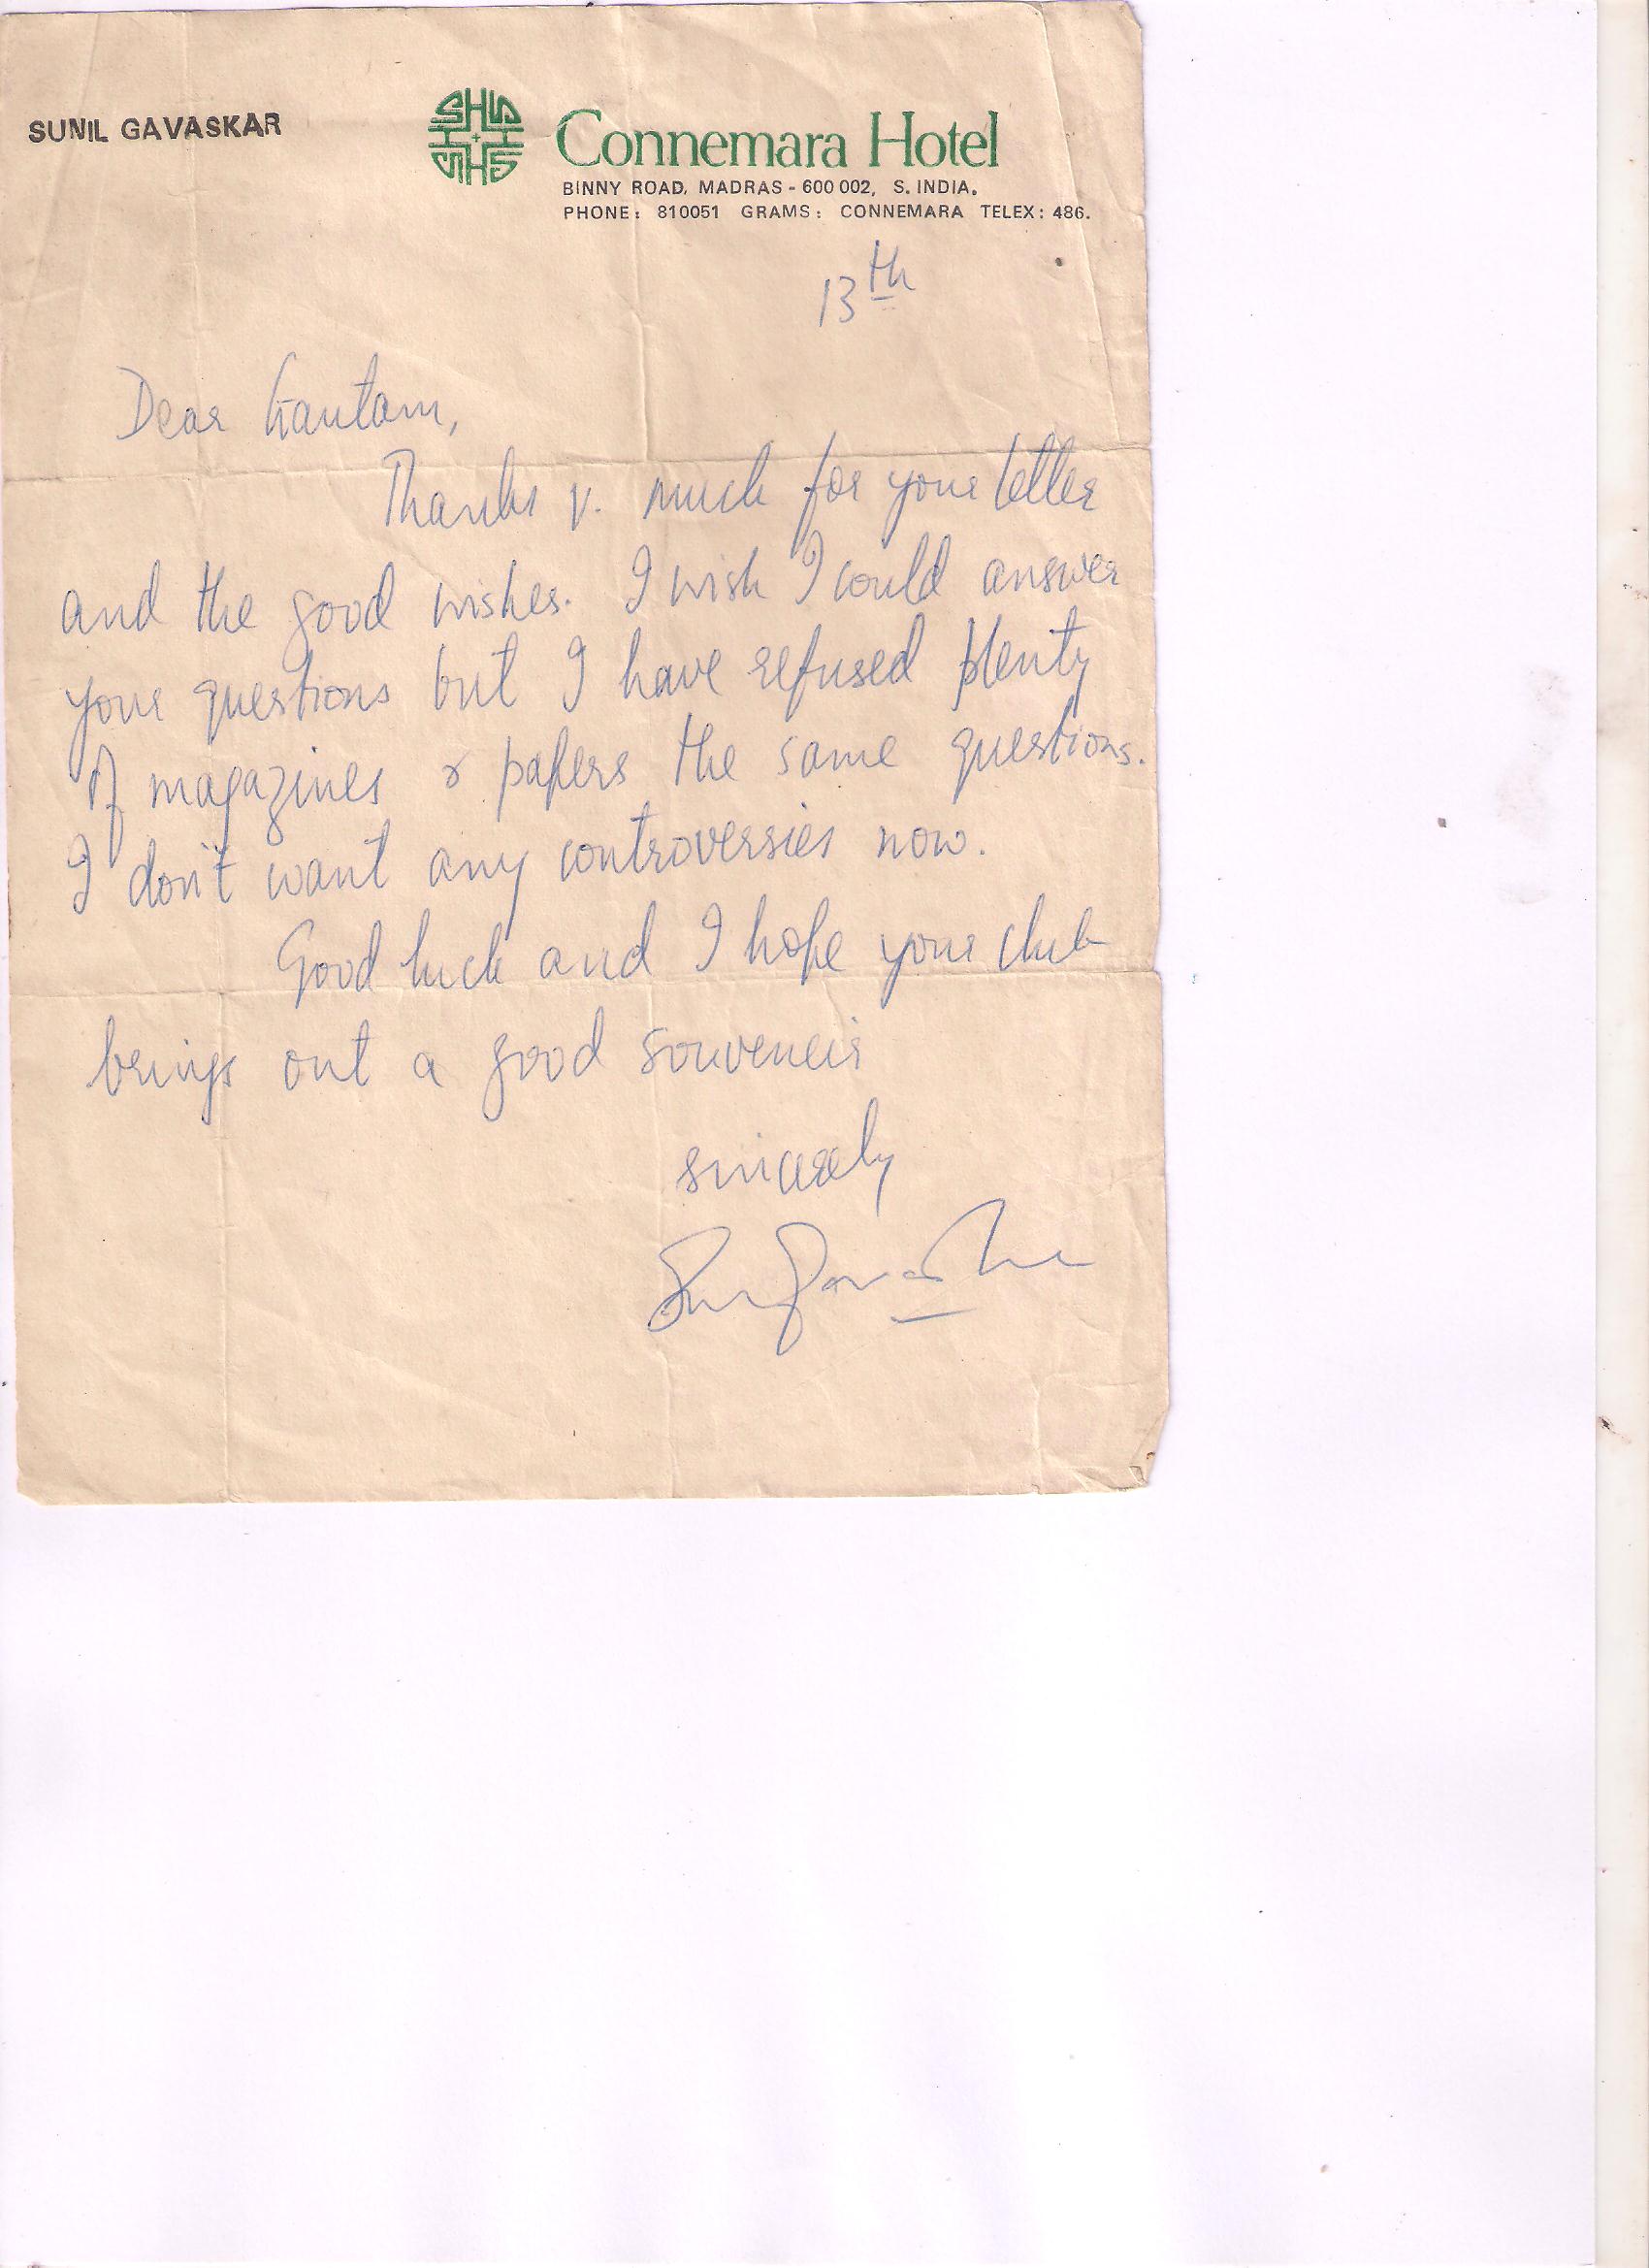 SUNIL GAVASKAR
Connemara Hotel
BINNY ROAD, MADRAS - 600 002, S. INDIA.
PHONE: 810051 GRAMS: CONNEMARA TELEX: 486.
13th
Dear Gautam,
Thanks v. much for your letter
and the good wishes. I wish I could answer
your questions but I have refused plenty
of magazines & papers the same questions.
I don't want any controversies now.
Good luck and I hope your club
brings out a good souveneir
sincerely